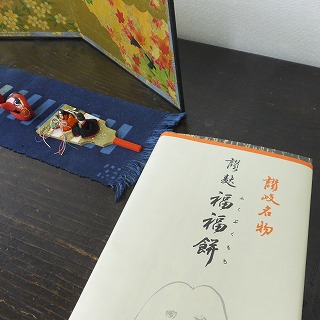 讃岐名物
讃麩 福福餅
ふくぶくもち